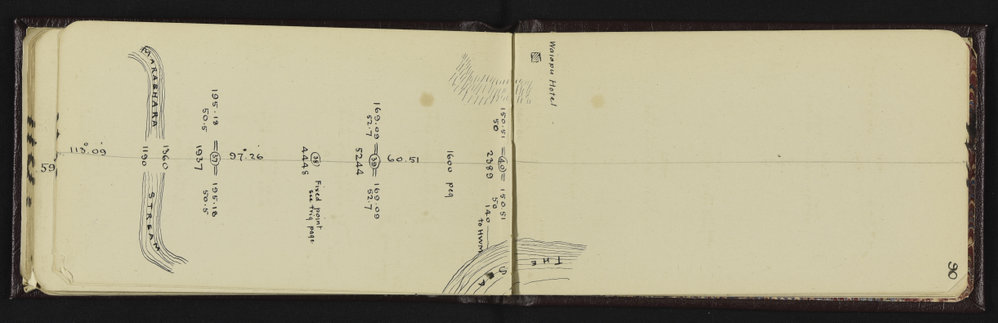 113° 09'
59
MARAEHARA
STREAM
1190
1360
195.18
50.5
1937
= 37 =
195.18
50.5
97° 26'
4448
38
Fixed point
see trig page
169.09
52.7
5244
= 39 =
169.09
52.7
60.51
1600 peg
150.51
50
2389
= 40 =
150.51
50
140
to HWM
THE
SEA
Waiapu Hotel
90